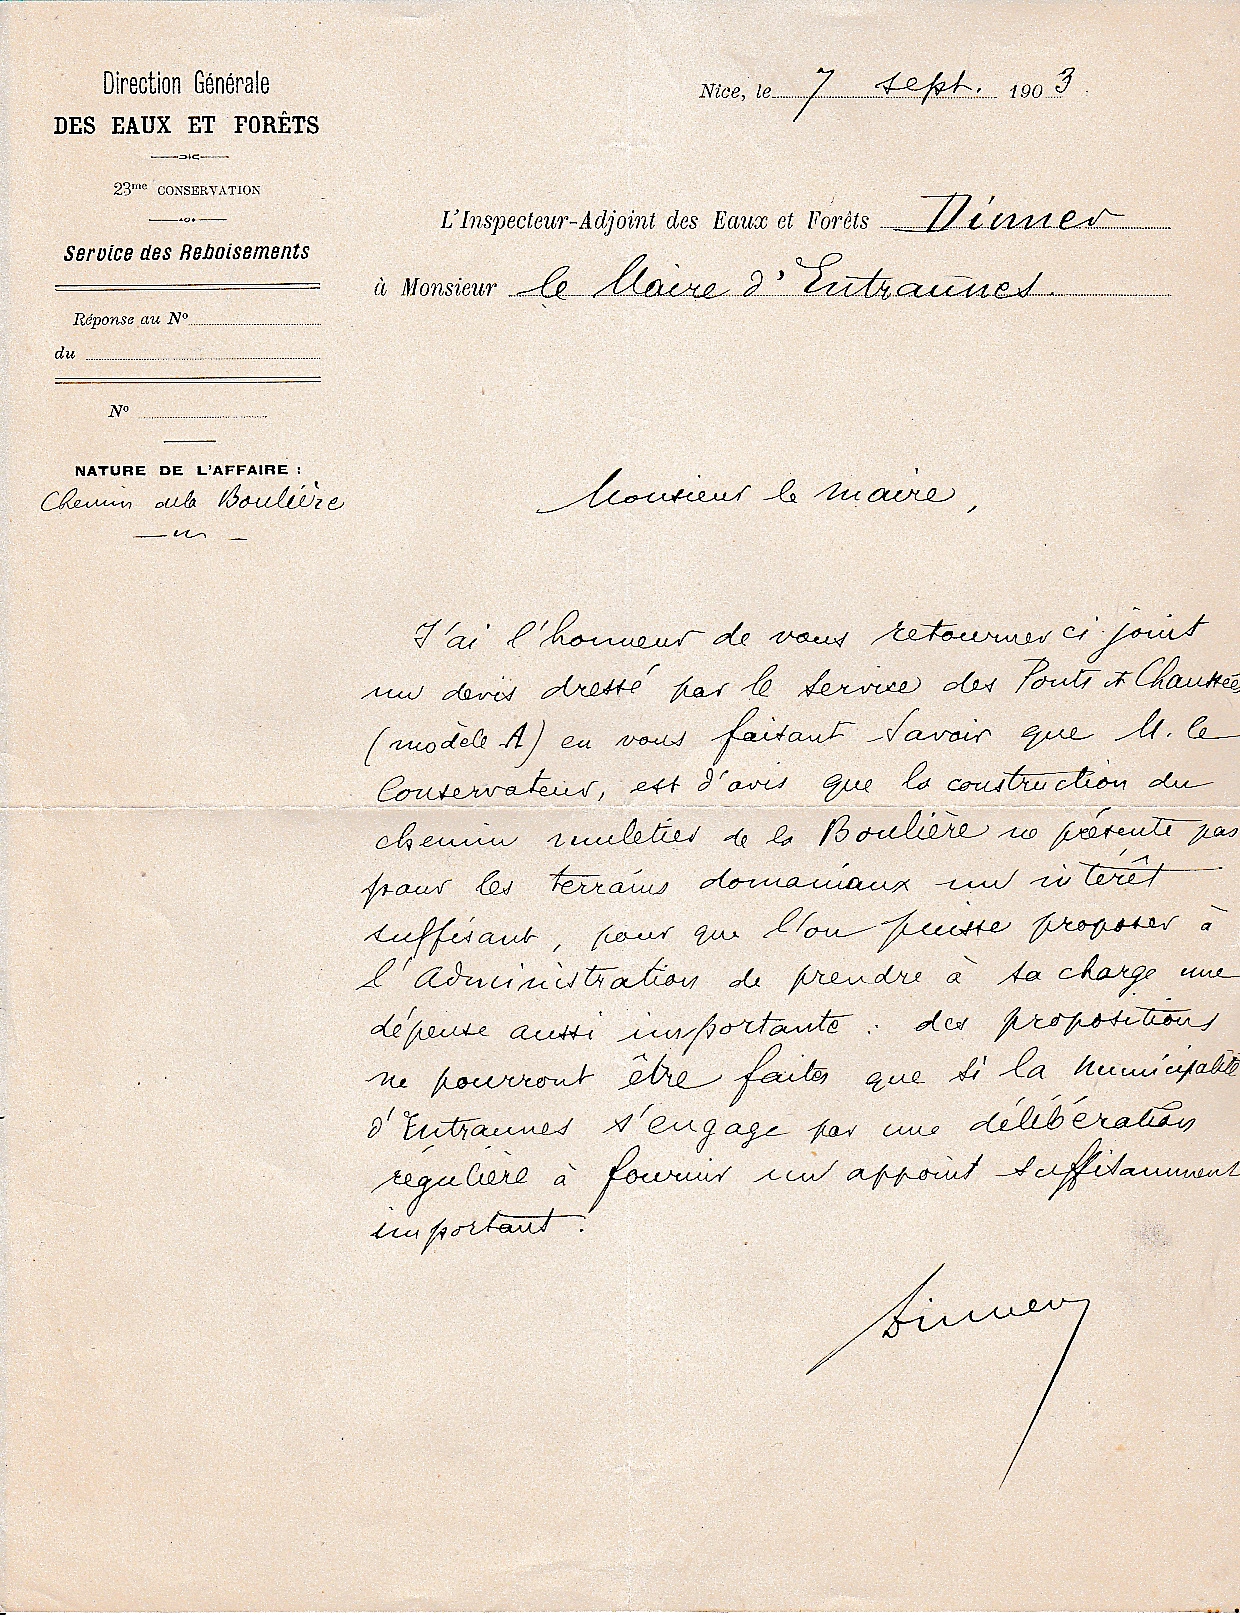 Direction Générale
DES EAUX ET FORÊTS
23me CONSERVATION
Service des Reboisements
Réponse au No
du
No
NATURE DE L'AFFAIRE :
Chemin de la Boulière
Nice, le 7 sept. 1903
L'Inspecteur-Adjoint des Eaux et Forêts Dinner
à Monsieur le Maire d'Entraunes.
Monsieur le Maire,
J'ai l'honneur de vous retourner ci joint
un devis dressé par le Service des Ponts et Chaussées
(modèle A) en vous faisant savoir que M. le
Conservateur, est d'avis que la construction du
chemin muletier de la Boulière ne présente pas
pour les terrains domaniaux un intérêt
suffisant, pour que l'on puisse proposer à
l'Administration de prendre à sa charge une
dépense aussi importante : des propositions
ne pourront être faites que si la Municipalité
d'Entraunes s'engage par une délibération
régulière à fournir un appoint suffisamment
important.
Dinner